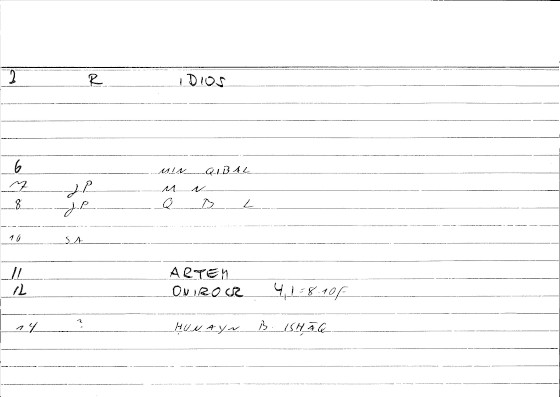 2 R IDIOS
6 MIN QIBAL
7 JP M N
8 JP Q B L
10 SA
11 ARTEM
12 ONIROCR 4,1 = 8.10F
14 ? ḤUNAYN B. ISḤĀQ